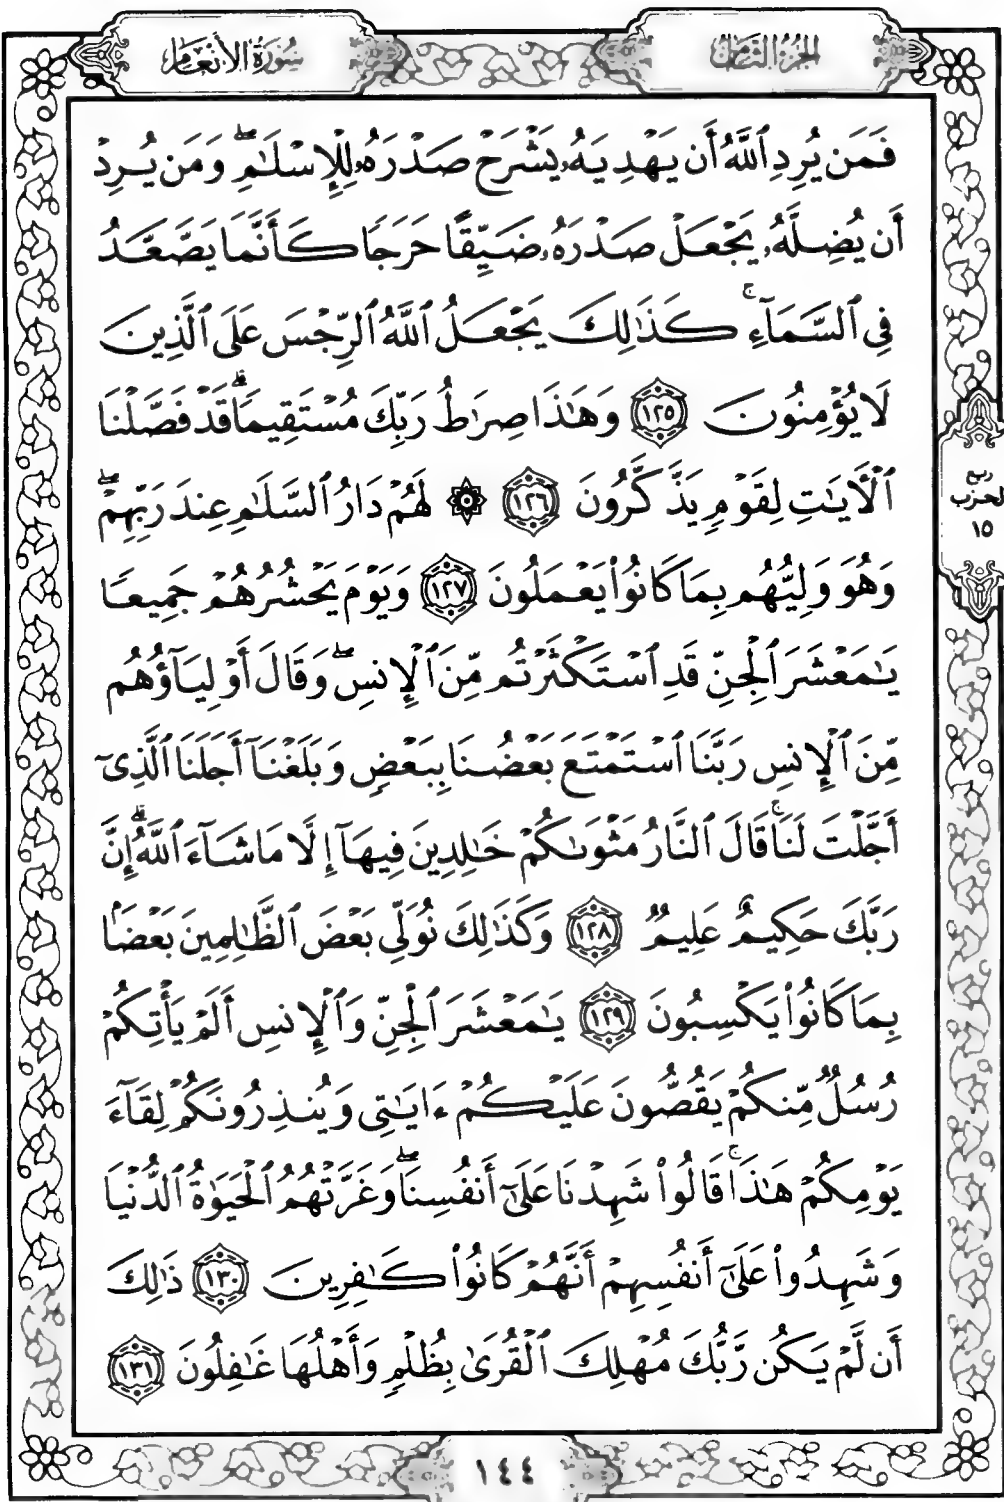 الجزء الثامن
سورة الأنعام
فَمَن يُرِدِ ٱللَّهُ أَن يَهْدِيَهُۥ يَشْرَحْ صَدْرَهُۥ لِلْإِسْلَـٰمِ ۖ وَمَن يُرِدْ
أَن يُضِلَّهُۥ يَجْعَلْ صَدْرَهُۥ ضَيِّقًا حَرَجًا كَأَنَّمَا يَصَّعَّدُ
فِى ٱلسَّمَآءِ ۚ كَذَٰلِكَ يَجْعَلُ ٱللَّهُ ٱلرِّجْسَ عَلَى ٱلَّذِينَ
لَا يُؤْمِنُونَ ١٢٥ وَهَـٰذَا صِرَٰطُ رَبِّكَ مُسْتَقِيمًا ۗ قَدْ فَصَّلْنَا
ٱلْـَٔايَـٰتِ لِقَوْمٍ يَذَّكَّرُونَ ١٢٦ ۞ لَهُمْ دَارُ ٱلسَّلَـٰمِ عِندَ رَبِّهِمْ ۖ
وَهُوَ وَلِيُّهُم بِمَا كَانُوا۟ يَعْمَلُونَ ١٢٧ وَيَوْمَ يَحْشُرُهُمْ جَمِيعًا
يَـٰمَعْشَرَ ٱلْجِنِّ قَدِ ٱسْتَكْثَرْتُم مِّنَ ٱلْإِنسِ ۖ وَقَالَ أَوْلِيَآؤُهُم
مِّنَ ٱلْإِنسِ رَبَّنَا ٱسْتَمْتَعَ بَعْضُنَا بِبَعْضٍ وَبَلَغْنَآ أَجَلَنَا ٱلَّذِىٓ
أَجَّلْتَ لَنَا ۚ قَالَ ٱلنَّارُ مَثْوَىٰكُمْ خَـٰلِدِينَ فِيهَآ إِلَّا مَا شَآءَ ٱللَّهُ ۗ إِنَّ
رَبَّكَ حَكِيمٌ عَلِيمٌ ١٢٨ وَكَذَٰلِكَ نُوَلِّى بَعْضَ ٱلظَّـٰلِمِينَ بَعْضًۢا
بِمَا كَانُوا۟ يَكْسِبُونَ ١٢٩ يَـٰمَعْشَرَ ٱلْجِنِّ وَٱلْإِنسِ أَلَمْ يَأْتِكُمْ
رُسُلٌ مِّنكُمْ يَقُصُّونَ عَلَيْكُمْ ءَايَـٰتِى وَيُنذِرُونَكُمْ لِقَآءَ
يَوْمِكُمْ هَـٰذَا ۚ قَالُوا۟ شَهِدْنَا عَلَىٰٓ أَنفُسِنَا ۖ وَغَرَّتْهُمُ ٱلْحَيَوٰةُ ٱلدُّنْيَا
وَشَهِدُوا۟ عَلَىٰٓ أَنفُسِهِمْ أَنَّهُمْ كَانُوا۟ كَـٰفِرِينَ ١٣٠ ذَٰلِكَ
أَن لَّمْ يَكُن رَّبُّكَ مُهْلِكَ ٱلْقُرَىٰ بِظُلْمٍ وَأَهْلُهَا غَـٰفِلُونَ ١٣١
ربع
الحزب
١٥
١٤٤